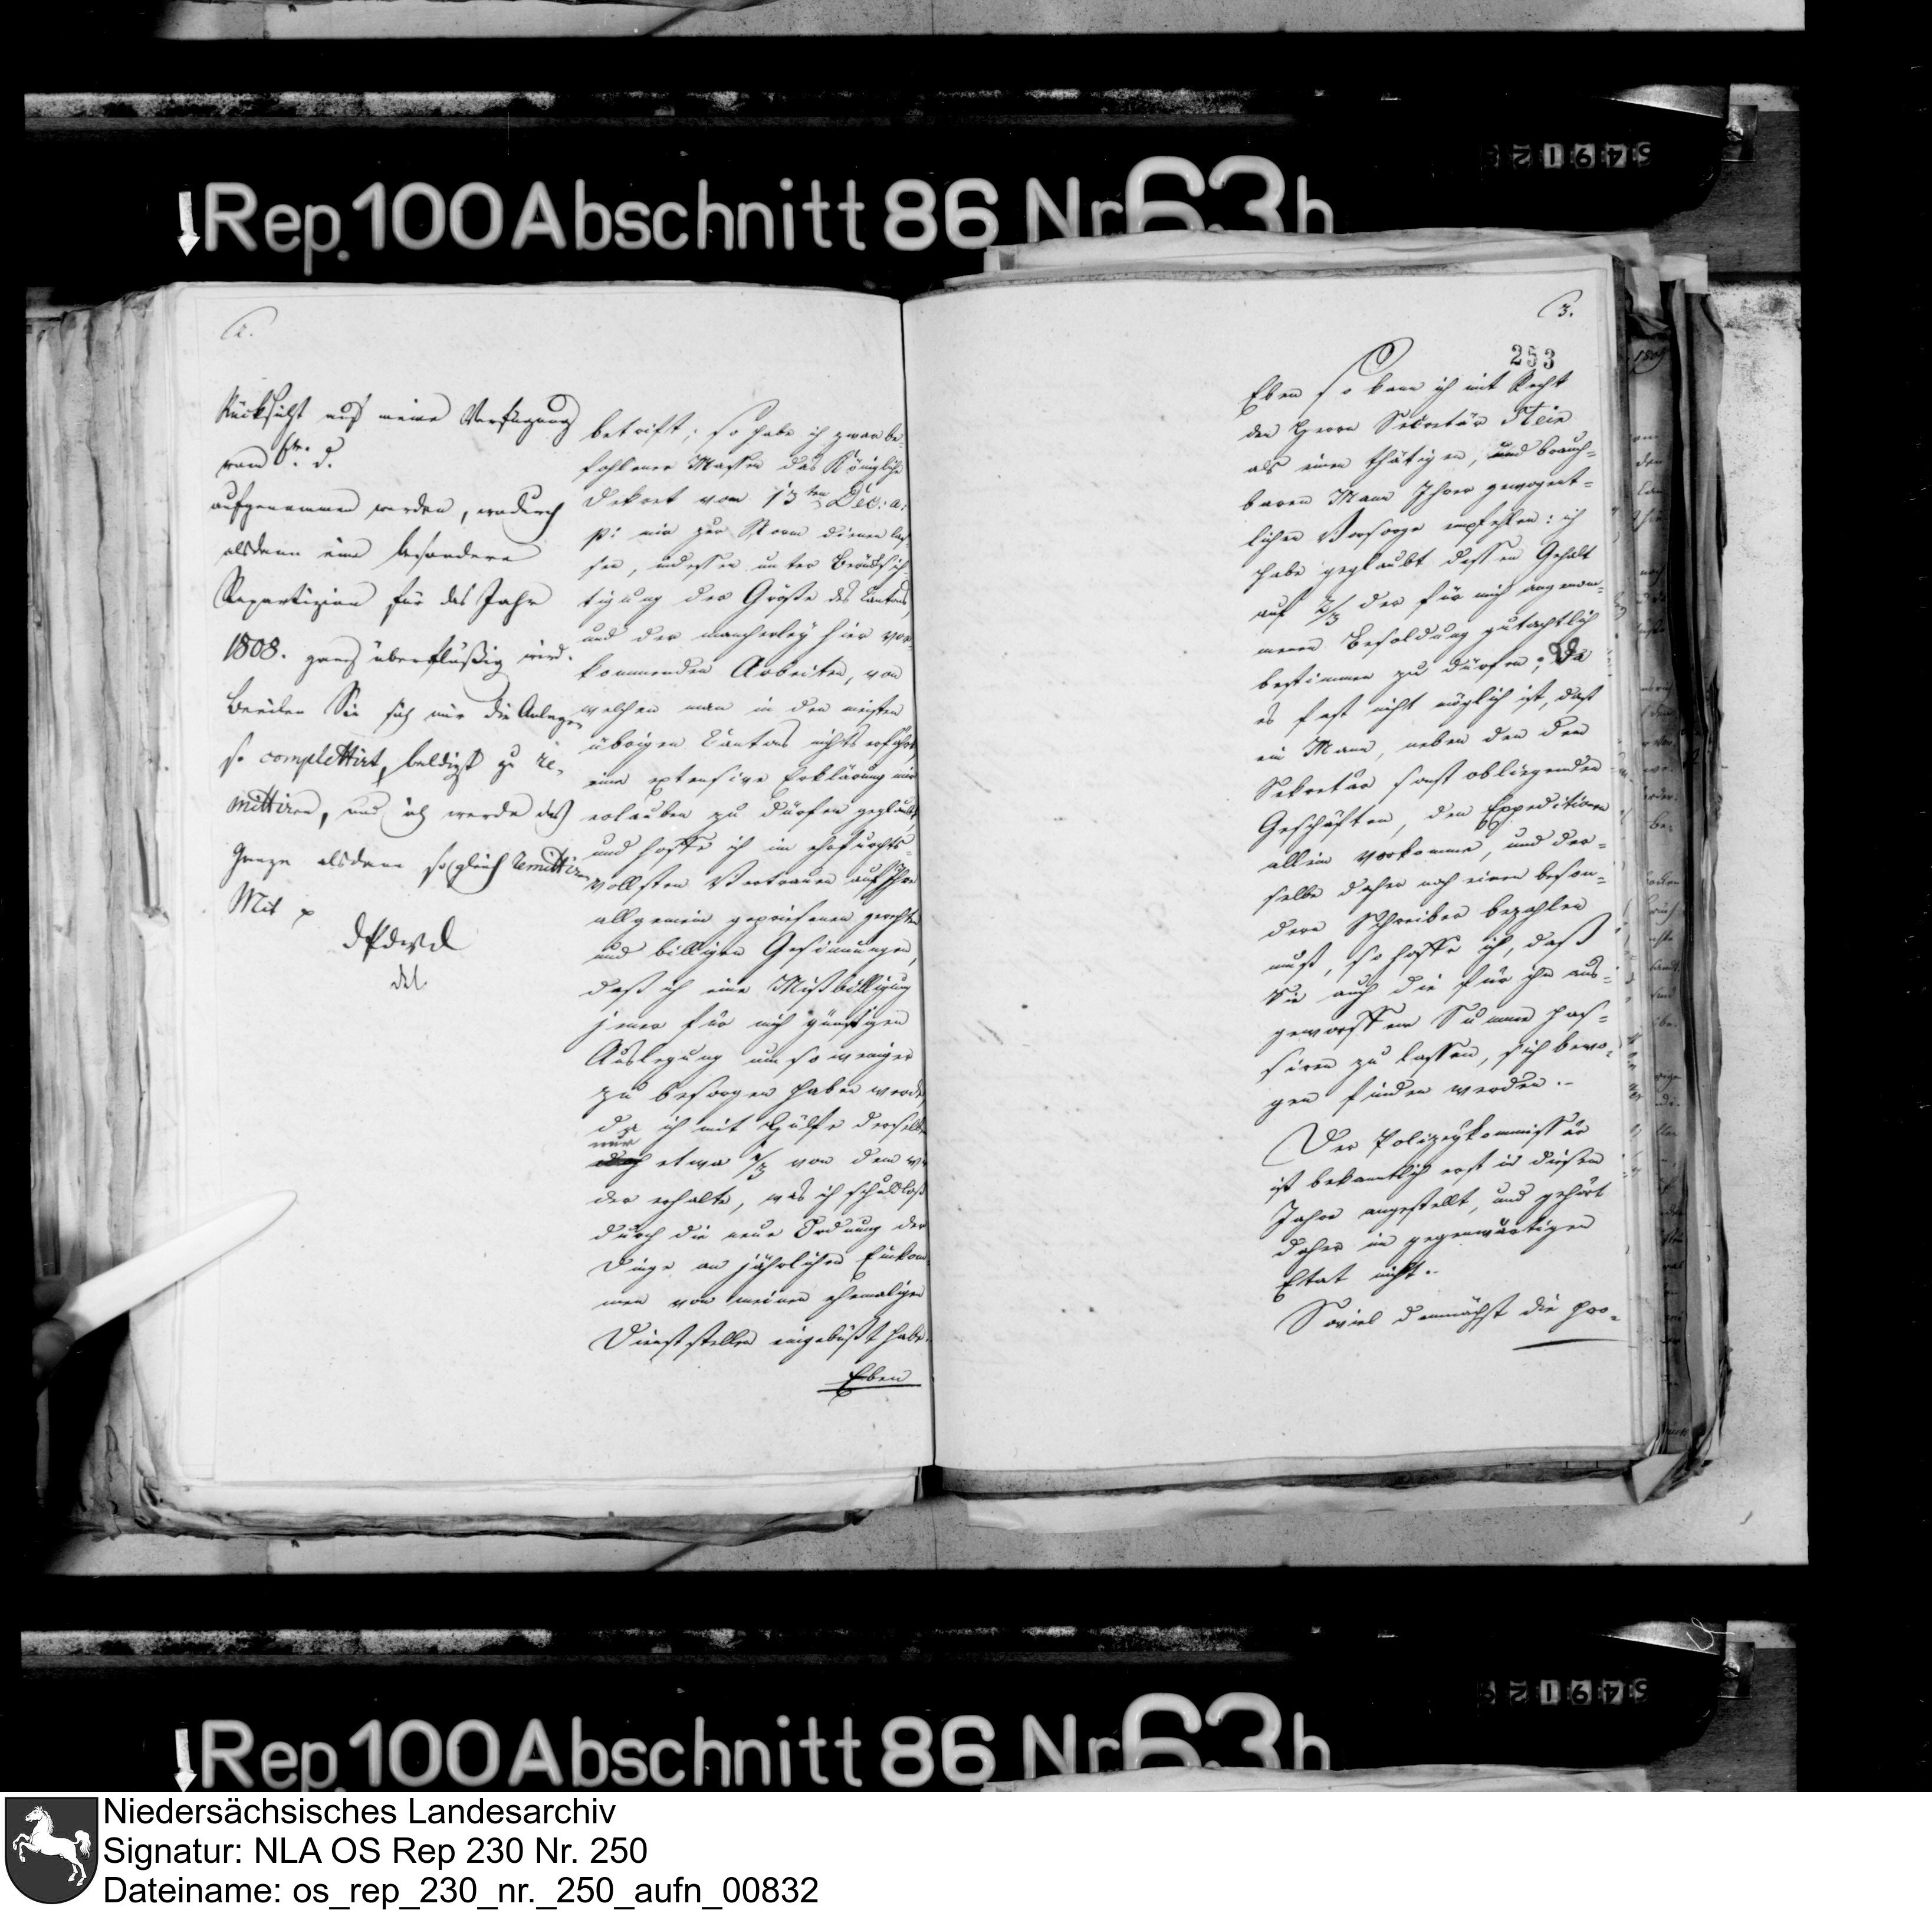 Rep. 100 Abschnitt 86 Nr 63 h
2.
Rücksicht auf meine Verfügung
vom 6ten d.
aufgenommen werden, wodurch
alsdann eine besondere
Repartizion für das Jahr
1808. ganz überflüßig wird.
Beeilen Sie sich mir die Anlagen
so complettirt, baldigst zu re-
mittiren, und ich werde das
Ganze alsdann sogleich remittiren
Mit
betrift; so habe ich zwar be-
fohlener Massen das Königliche
Dekret vom 13ten Dec: a:
p: mir zur Norm dienen las-
sen, indessen unter Berücksich-
tigung der Größe des Cantons,
und der mancherley hier vor-
kommenden Arbeiten, von
welchen man in den meisten
übrigen Cantons nichts erfährt,
eine extensive Erklärung mir
erlauben zu dürfen geglaubt,
und hoffe ich im ehrfurchts-
vollsten Vertrauen auf Ihre
allgemein gepriesenen gerechten
und billigen Gesinnungen,
daß ich eine Mißbilligung
jener für mich günstigen
Auslegung um so weniger
zu besorgen haben werde,
da ich mit Hülfe derselben
nur
etwa 2/3 von dem wie-
der erhalte, was ich schuldlos
durch die neue Ordnung der
Dinge an jährlichen Einkom-
men von meinen ehemaligen
Dienststellen eingebüßt habe.
Eben
3.
253
Eben so kann ich mit Recht
den Herrn Secretär Stein
als einen thätigen, und brauch-
baren Mann Ihrer gewogent-
lichen Vorsorge empfehlen: ich
habe geglaubt dessen Gehalt
auf 2/3 der für mich angenom-
menen Besoldung gutachtlich
bestimmen zu dürfen; Da
es fast nicht möglich ist, daß
ein Mann, neben den dem
Sekretär sonst obliegenden
Geschäften, den Expeditionen
allein vorkomme, und der-
selbe daher noch einen beson-
dern Schreiber bezahlen
muß, so hoffe ich, daß
Sie auch die für ihn aus-
geworffene Summe pas-
siren zu lassen, sich bewo-
gen finden werden.-
Der Polizeykommissär
ist bekanntlich erst in diesem
Jahre angestellt, und gehört
daher im gegenwärtigen
Etat nicht.-
Soviel demnächst die pro-
Rep. 100 Abschnitt 86 Nr 63 h
Niedersächsisches Landesarchiv
Signatur: NLA OS Rep 230 Nr. 250
Dateiname: os_rep_230_nr._250_aufn_00832